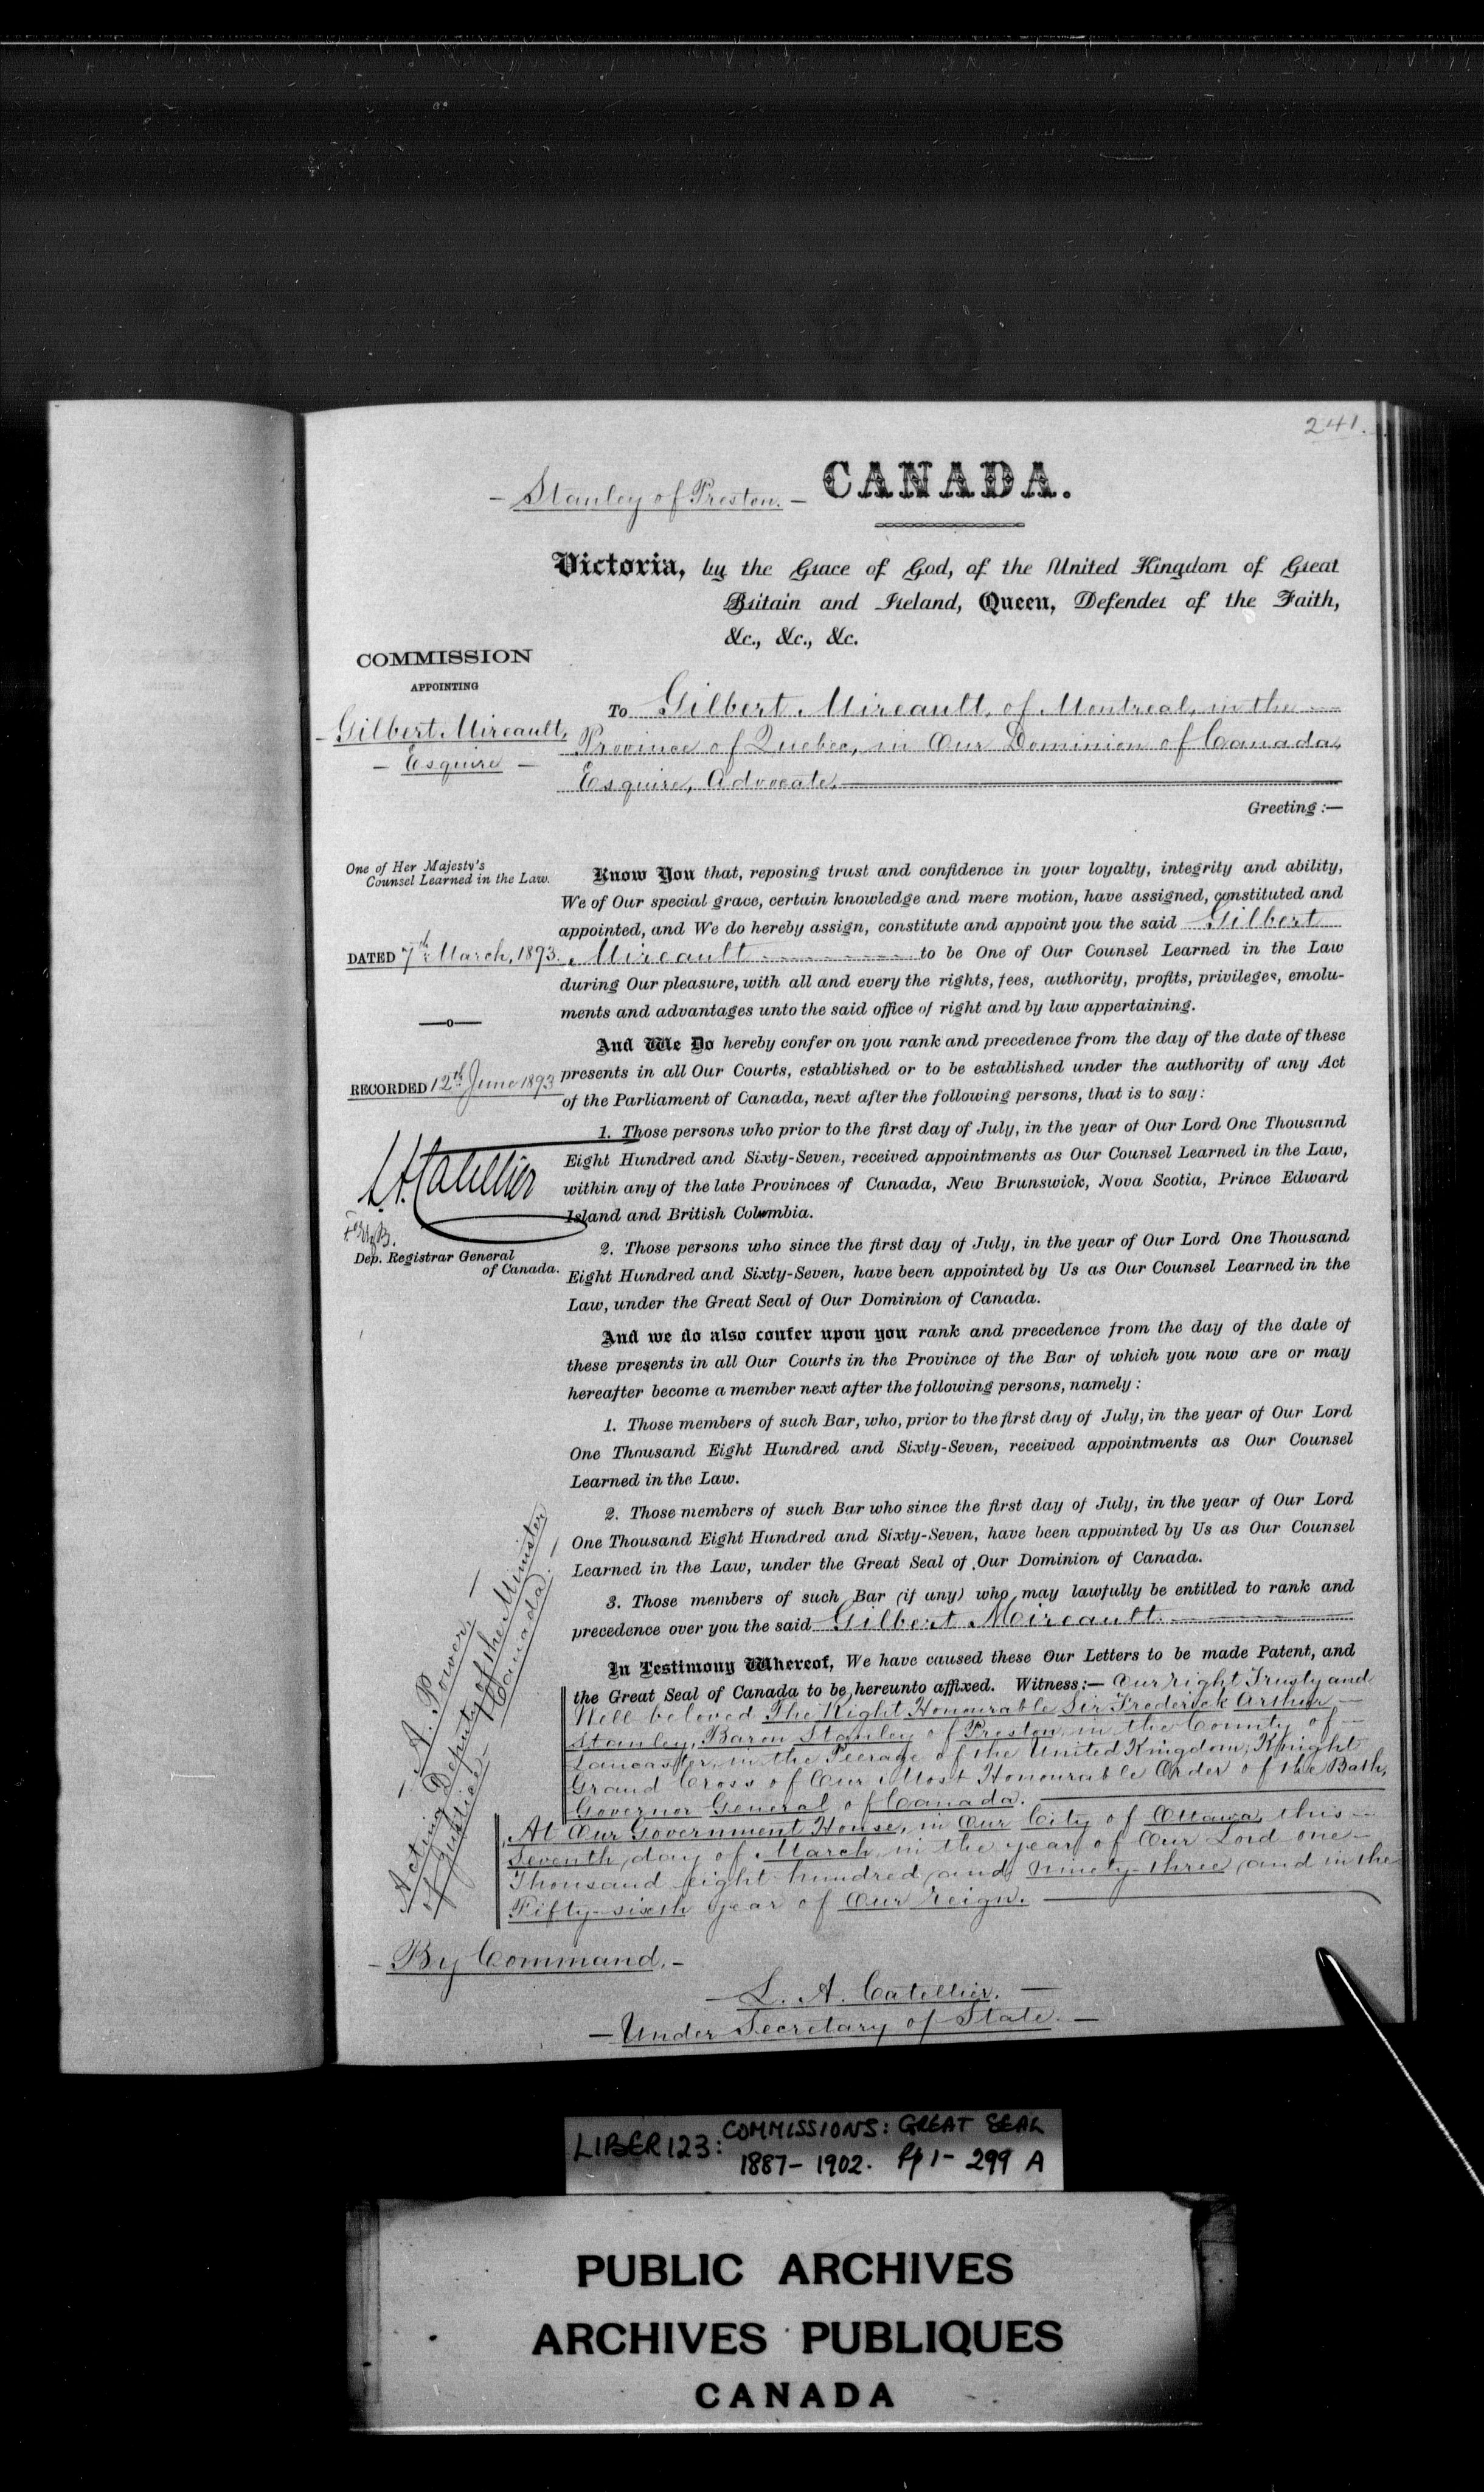 241.
- Stanley of Preston. -
CANADA.
Victoria, by the Grace of God, of the United Kingdom of Great
Britain and Ireland, Queen, Defender of the Faith,
&c., &c., &c.
COMMISSION
APPOINTING
- Gilbert Mireault,
- Esquire -
To Gilbert Mireault, of Montreal, in the
Province of Quebec, in Our Dominion of Canada,
Esquire, Advocate,
Greeting :—
One of Her Majesty's
Counsel Learned in the Law.
DATED 7th March, 1893.
—o—
RECORDED 12th June 1893
L. A. Catellier
Dep. Registrar General
of Canada.
Know You that, reposing trust and confidence in your loyalty, integrity and ability,
We of Our special grace, certain knowledge and mere motion, have assigned, constituted and
appointed, and We do hereby assign, constitute and appoint you the said Gilbert
Mireault to be One of Our Counsel Learned in the Law
during Our pleasure, with all and every the rights, fees, authority, profits, privileges, emolu-
ments and advantages unto the said office of right and by law appertaining.
And We Do hereby confer on you rank and precedence from the day of the date of these
presents in all Our Courts, established or to be established under the authority of any Act
of the Parliament of Canada, next after the following persons, that is to say:
1. Those persons who prior to the first day of July, in the year of Our Lord One Thousand
Eight Hundred and Sixty-Seven, received appointments as Our Counsel Learned in the Law,
within any of the late Provinces of Canada, New Brunswick, Nova Scotia, Prince Edward
Island and British Columbia.
2. Those persons who since the first day of July, in the year of Our Lord One Thousand
Eight Hundred and Sixty-Seven, have been appointed by Us as Our Counsel Learned in the
Law, under the Great Seal of Our Dominion of Canada.
And we do also confer upon you rank and precedence from the day of the date of
these presents in all Our Courts in the Province of the Bar of which you now are or may
hereafter become a member next after the following persons, namely :
1. Those members of such Bar, who, prior to the first day of July, in the year of Our Lord
One Thousand Eight Hundred and Sixty-Seven, received appointments as Our Counsel
Learned in the Law.
2. Those members of such Bar who since the first day of July, in the year of Our Lord
One Thousand Eight Hundred and Sixty-Seven, have been appointed by Us as Our Counsel
Learned in the Law, under the Great Seal of Our Dominion of Canada.
3. Those members of such Bar (if any) who may lawfully be entitled to rank and
precedence over you the said Gilbert Mireault.
In Testimony Whereof, We have caused these Our Letters to be made Patent, and
the Great Seal of Canada to be hereunto affixed. Witness :— Our right Trusty and
Well beloved The Right Honourable Sir Frederick Arthur
Stanley, Baron Stanley of Preston, in the County of
Lancaster, in the Peerage of the United Kingdom, Knight
Grand Cross of Our Most Honourable Order of the Bath,
Governor General of Canada.
At Our Government House, in Our City of Ottawa, this
Seventh day of March in the year of Our Lord one
Thousand eight hundred and ninety-three and in the
Fifty-sixth year of Our reign.
- A. Power, -
Acting Deputy of the Minister
of Justice, Canada. -
- By Command. -
- L. A. Catellier. -
- Under Secretary of State. -
LIBER 123: COMMISSIONS: GREAT SEAL
1887 - 1902. Pp 1 - 299 A
PUBLIC ARCHIVES
ARCHIVES PUBLIQUES
CANADA